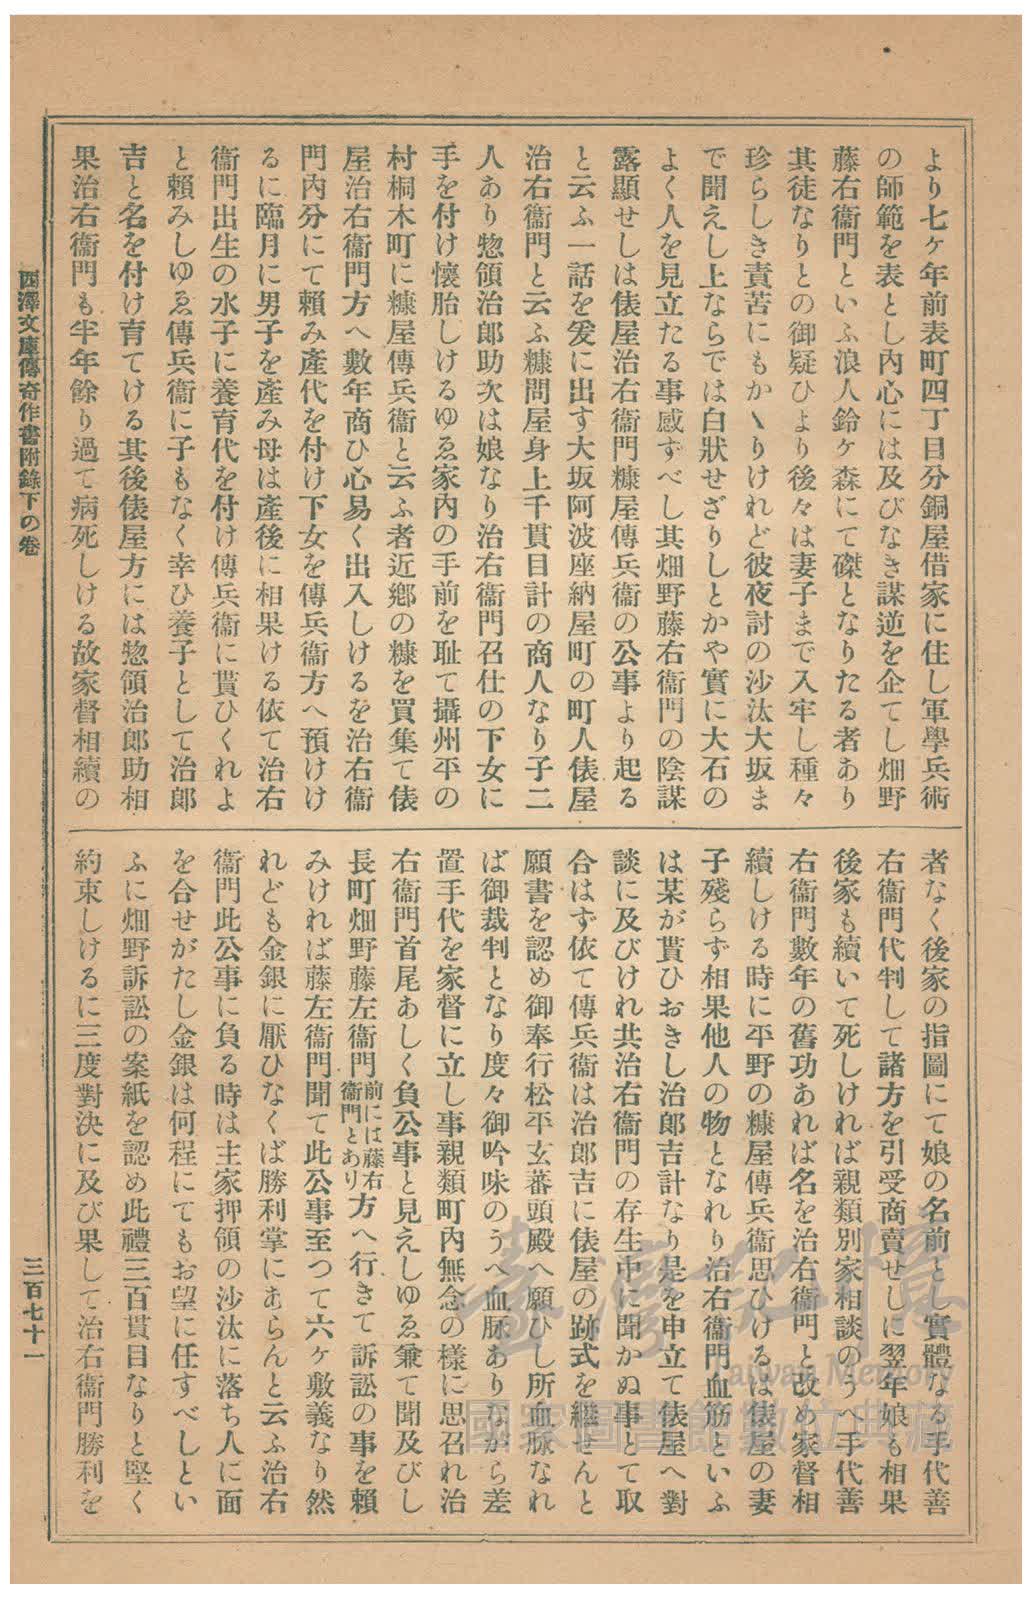 より七ケ年前表町四丁目分銅屋借家に住し軍學兵術
の師範を表とし内心には及びなき謀逆を企てし畑野
藤右衞門といふ浪人鈴ケ森にて磔となりたる者あり
其徒なりとの御疑ひより後々は妻子まで入牢し種々
珍らしき責苦にもかゝりけれど彼夜討の沙汰大坂ま
で聞えし上ならでは白狀せざりしとかや實に大石の
よく人を見立たる事感ずべし其畑野藤右衞門の陰謀
露顯せしは俵屋治右衞門糠屋傳兵衞の公事より起る
と云ふ一話を爰に出す大坂阿波座納屋町の町人俵屋
治右衞門と云ふ糠問屋身上千貫目計の商人なり子二
人あり惣領治郎助次は娘なり治右衞門召仕の下女に
手を付け懷胎しけるゆゑ家内の手前を耻て攝州平の
村桐木町に糠屋傳兵衞と云ふ者近鄕の糠を買集て俵
屋治右衞門方へ數年商ひ心易く出入しけるを治右衞
門内分にて賴み產代を付け下女を傳兵衞方へ預けけ
るに臨月に男子を產み母は產後に相果ける依て治右
衞門出生の水子に養育代を付け傳兵衞に貰ひくれよ
と賴みしゆゑ傳兵衞に子もなく幸ひ養子として治郎
吉と名を付け育てける其後俵屋方には惣領治郎助相
果治右衞門も半年餘り過て病死しける故家督相續の
者なく後家の指圖にて娘の名前とし實體なる手代善
右衞門代判して諸方を引受商賣せしに翌年娘も相果
後家も續いて死しければ親類別家相談のうへ手代善
右衞門數年の舊功あれば名を治右衞門と改め家督相
續しける時に平野の糠屋傳兵衞思ひけるは俵屋の妻
子殘らず相果他人の物となれり治右衞門血筋といふ
は某が貰ひおきし治郎吉計なり是を申立て俵屋へ對
談に及びけれ共治右衞門の存生中に聞かぬ事とて取
合はず依て傳兵衞は治郎吉に俵屋の跡式を繼せんと
願書を認め御奉行松平玄蕃頭殿へ願ひし所血脉なれ
ば御裁判となり度々御吟味のうへ血脉ありながら差
置手代を家督に立し事親類町内無念の樣に思召れ治
右衞門首尾あしく負公事と見えしゆゑ兼て聞及びし
長町畑野藤左衞門前には藤右衞門とあり方へ行きて訴訟の事を賴
みければ藤左衞門聞て此公事至つて六ケ敷義なり然
れども金銀に厭ひなくば勝利掌にあらんと云ふ治右
衞門此公事に負る時は主家押領の沙汰に落ち人に面
を合せがたし金銀は何程にてもお望に任すべしとい
ふに畑野訴訟の案紙を認め此禮三百貫目なりと堅く
約束しけるに三度對決に及び果して治右衞門勝利を
西澤文庫傳奇作書附錄下の卷
三百七十一
臺灣記憶
Taiwan Memory
國家圖書館數位典藏